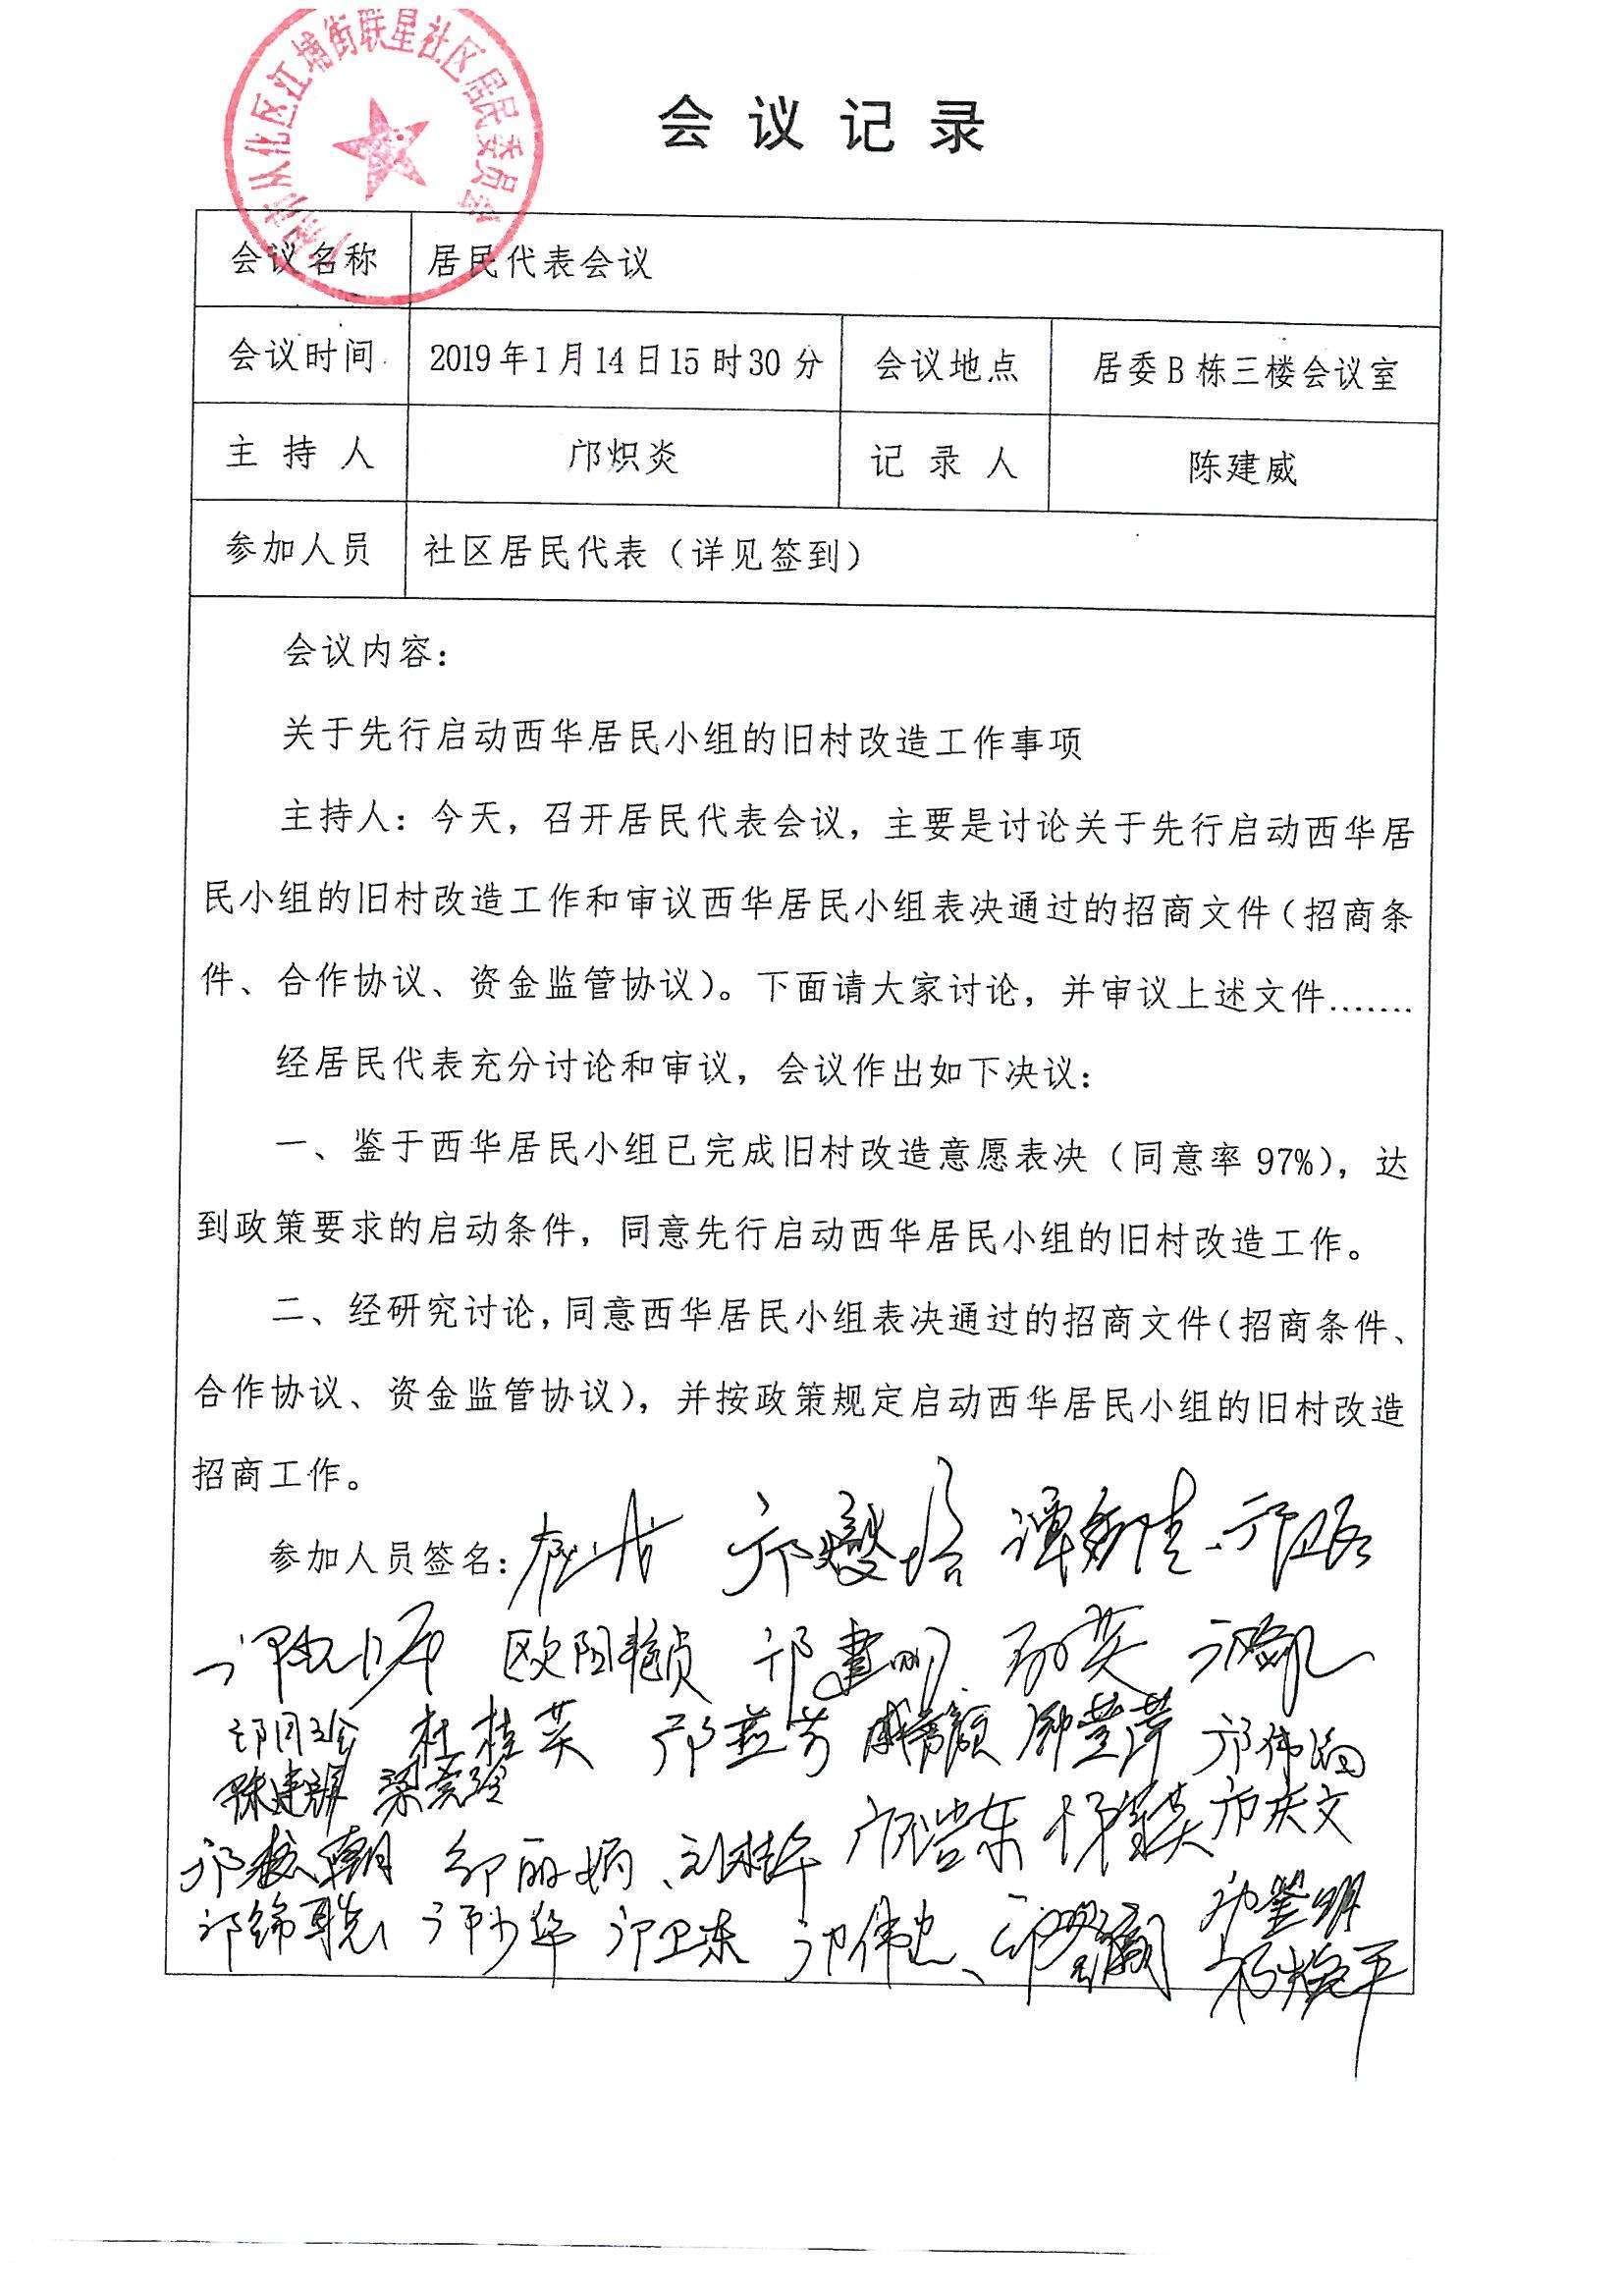 广州市从化区江埔街联星社区居民委员会
会议记录
会议名称 居民代表会议
会议时间 2019年1月14日15时30分 会议地点 居委B栋三楼会议室
主持人 邝炽炎 记录人 陈建威
参加人员 社区居民代表（详见签到）
会议内容：
关于先行启动西华居民小组的旧村改造工作事项
主持人：今天，召开居民代表会议，主要是讨论关于先行启动西华居
民小组的旧村改造工作和审议西华居民小组表决通过的招商文件（招商条
件、合作协议、资金监管协议）。下面请大家讨论，并审议上述文件.......
经居民代表充分讨论和审议，会议作出如下决议：
一、鉴于西华居民小组已完成旧村改造意愿表决（同意率97%），达
到政策要求的启动条件，同意先行启动西华居民小组的旧村改造工作。
二、经研究讨论，同意西华居民小组表决通过的招商文件（招商条件、
合作协议、资金监管协议），并按政策规定启动西华居民小组的旧村改造
招商工作。
参加人员签名：
欧阳艳贞 邝建明
杜桂英
邝浩东 邝庆文
邝少华 邝卫东 邝伟忠